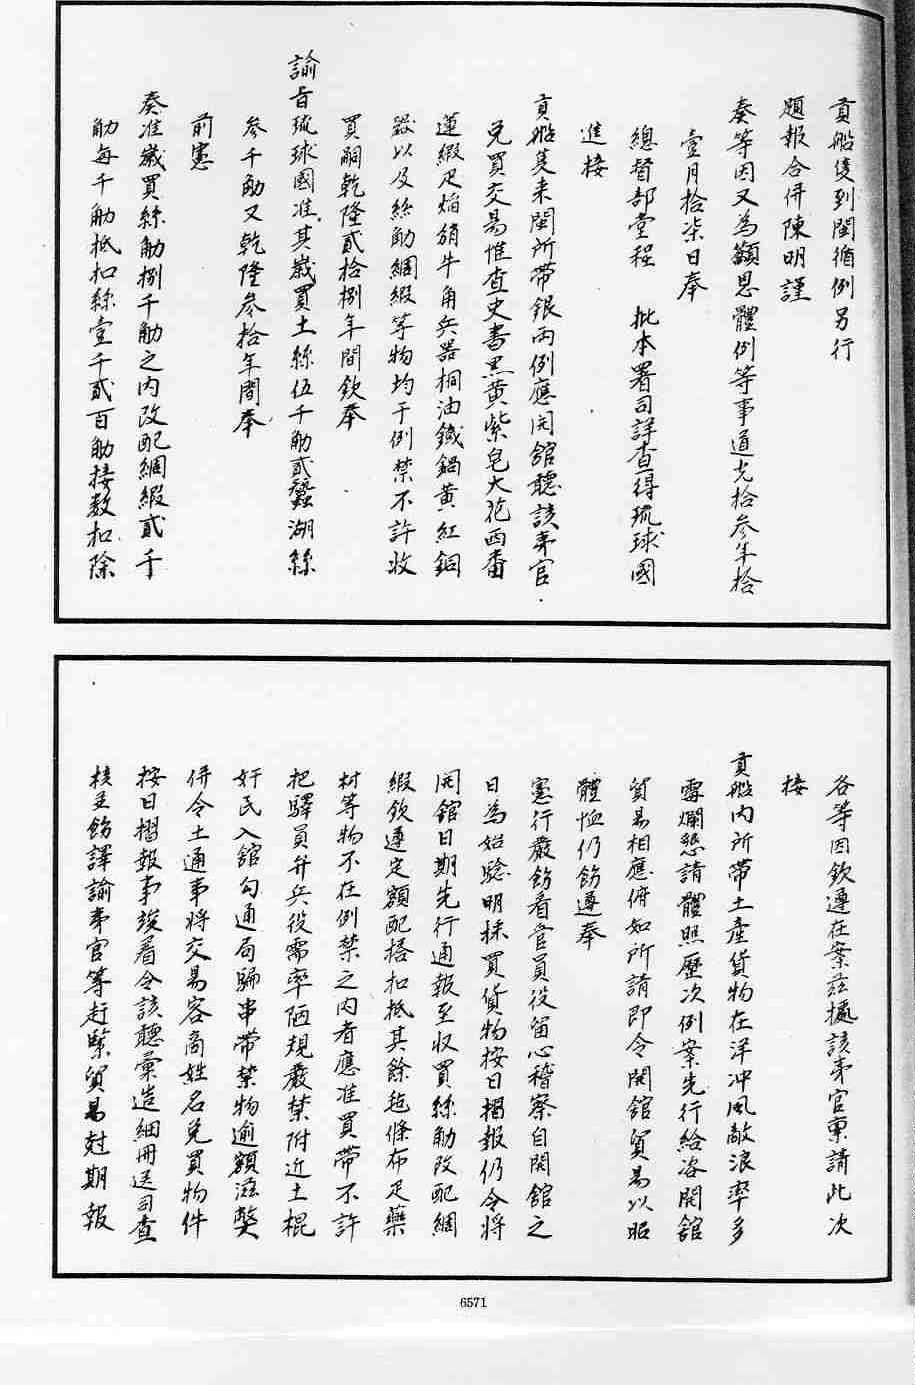 貢船隻到閩循例另行
題報合併陳明謹
奏等因又為籲恩體例等事道光拾叁年拾
壹月拾柒日奉
總督部堂程 批本署司詳查得琉球國
進接
貢船隻来閩所帶銀両例應開館聽該夷官
兌買交易惟查史書黑黄紫皂大花西番
蓮緞疋焔硝牛角兵器桐油鐵鍋黄紅銅
器以及絲觔綢緞等物均干例禁不許收
買嗣乾隆貳拾捌年間欽奉
諭旨琉球國准其歲買土絲伍千觔貳蠶湖絲
叁千觔又乾隆叁拾年間奉
前憲
奏准歲買絲觔捌千觔之内改配綢緞貳千
觔每千觔抵扣絲壹千貳百觔按数扣除
各等因欽遵在案茲據該夷官稟請此次
接
貢船内所帶土產貨物在洋冲風敵浪率多
霉爛懇請體照歷次例案先行給咨開館
貿易相應俯如所請即令開館貿易以昭
體恤仍飭遵奉
憲行嚴飭看管員役留心稽察自開館之
日為始驗明採買貨物按日摺報仍令將
開館日期先行通報至収買絲觔改配綢
緞欽遵定額配搭扣抵其餘毡條布疋藥
材等物不在例禁之内者應准買帶不許
把驛員弁兵役需率陋規嚴禁附近土棍
奸民入館勾通局騙串帶禁物逾額滋弊
併令土通事將交易客商姓名兌買物件
按日摺報事竣着令該聽彙造細冊送司查
核並飭譯諭夷官等赶緊貿易尅期報
6571